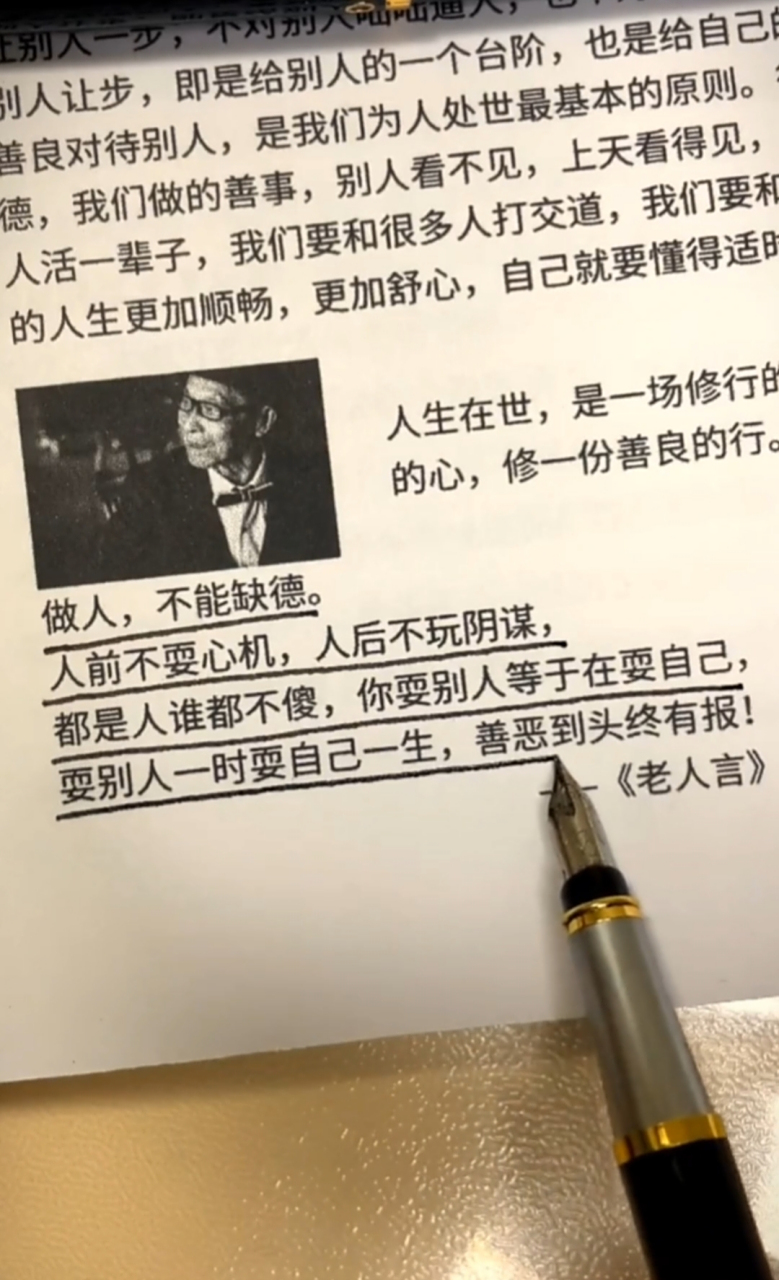 让别人一步，不对别人咄咄逼人，也不
别人让步，即是给别人的一个台阶，也是给自己的
善良对待别人，是我们为人处世最基本的原则。
德，我们做的善事，别人看不见，上天看得见，
人活一辈子，我们要和很多人打交道，我们要和
的人生更加顺畅，更加舒心，自己就要懂得适时
人生在世，是一场修行的
的心，修一份善良的行。
做人，不能缺德。
人前不耍心机，人后不玩阴谋，
都是人谁都不傻，你耍别人等于在耍自己，
耍别人一时耍自己一生，善恶到头终有报！
——《老人言》